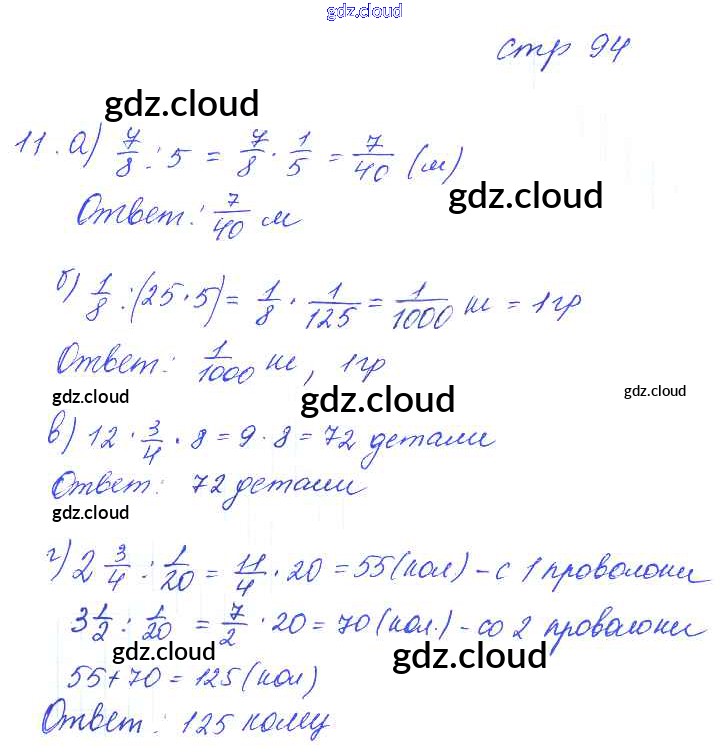 gdz.cloud
стр 94
gdz.cloud
11. а) 7/8 : 5 = 7/8 · 1/5 = 7/40 (м)
gdz.cloud
Ответ: 7/40 м
б) 1/8 : (25 · 5) = 1/8 · 1/125 = 1/1000 кг = 1 гр
Ответ: 1/1000 кг, 1 гр
gdz.cloud gdz.cloud gdz.cloud
в) 12 · 3/4 · 8 = 9 · 8 = 72 детали
Ответ: 72 детали
gdz.cloud
г) 2 3/4 : 1/20 = 11/4 · 20 = 55 (кол) – с 1 проволоки
3 1/2 : 1/20 = 7/2 · 20 = 70 (кол.) – со 2 проволоки
gdz.cloud gdz.cloud
55 + 70 = 125 (кол)
Ответ: 125 колец